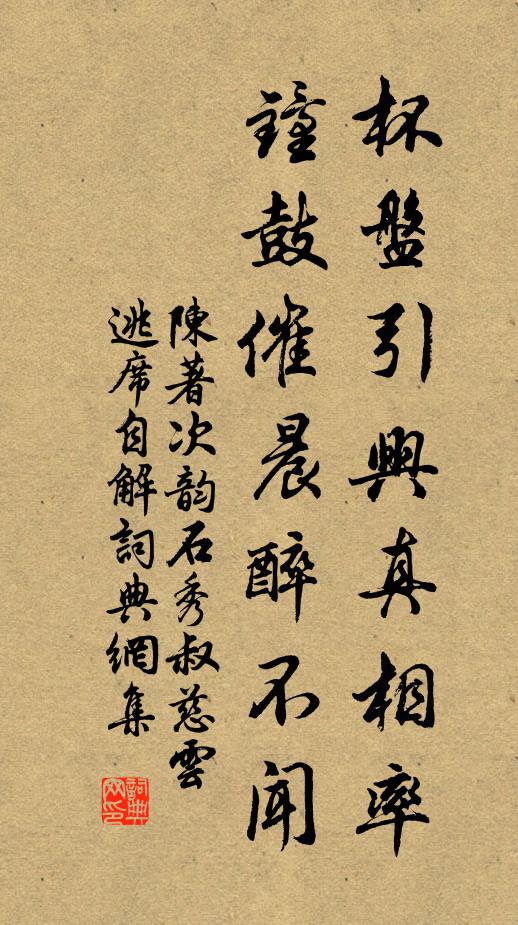 杯盤引興真相率
鐘鼓催晨醉不聞
陳著次韵石秀叔慈雲
逃席自解詞典網集
詞典
网印